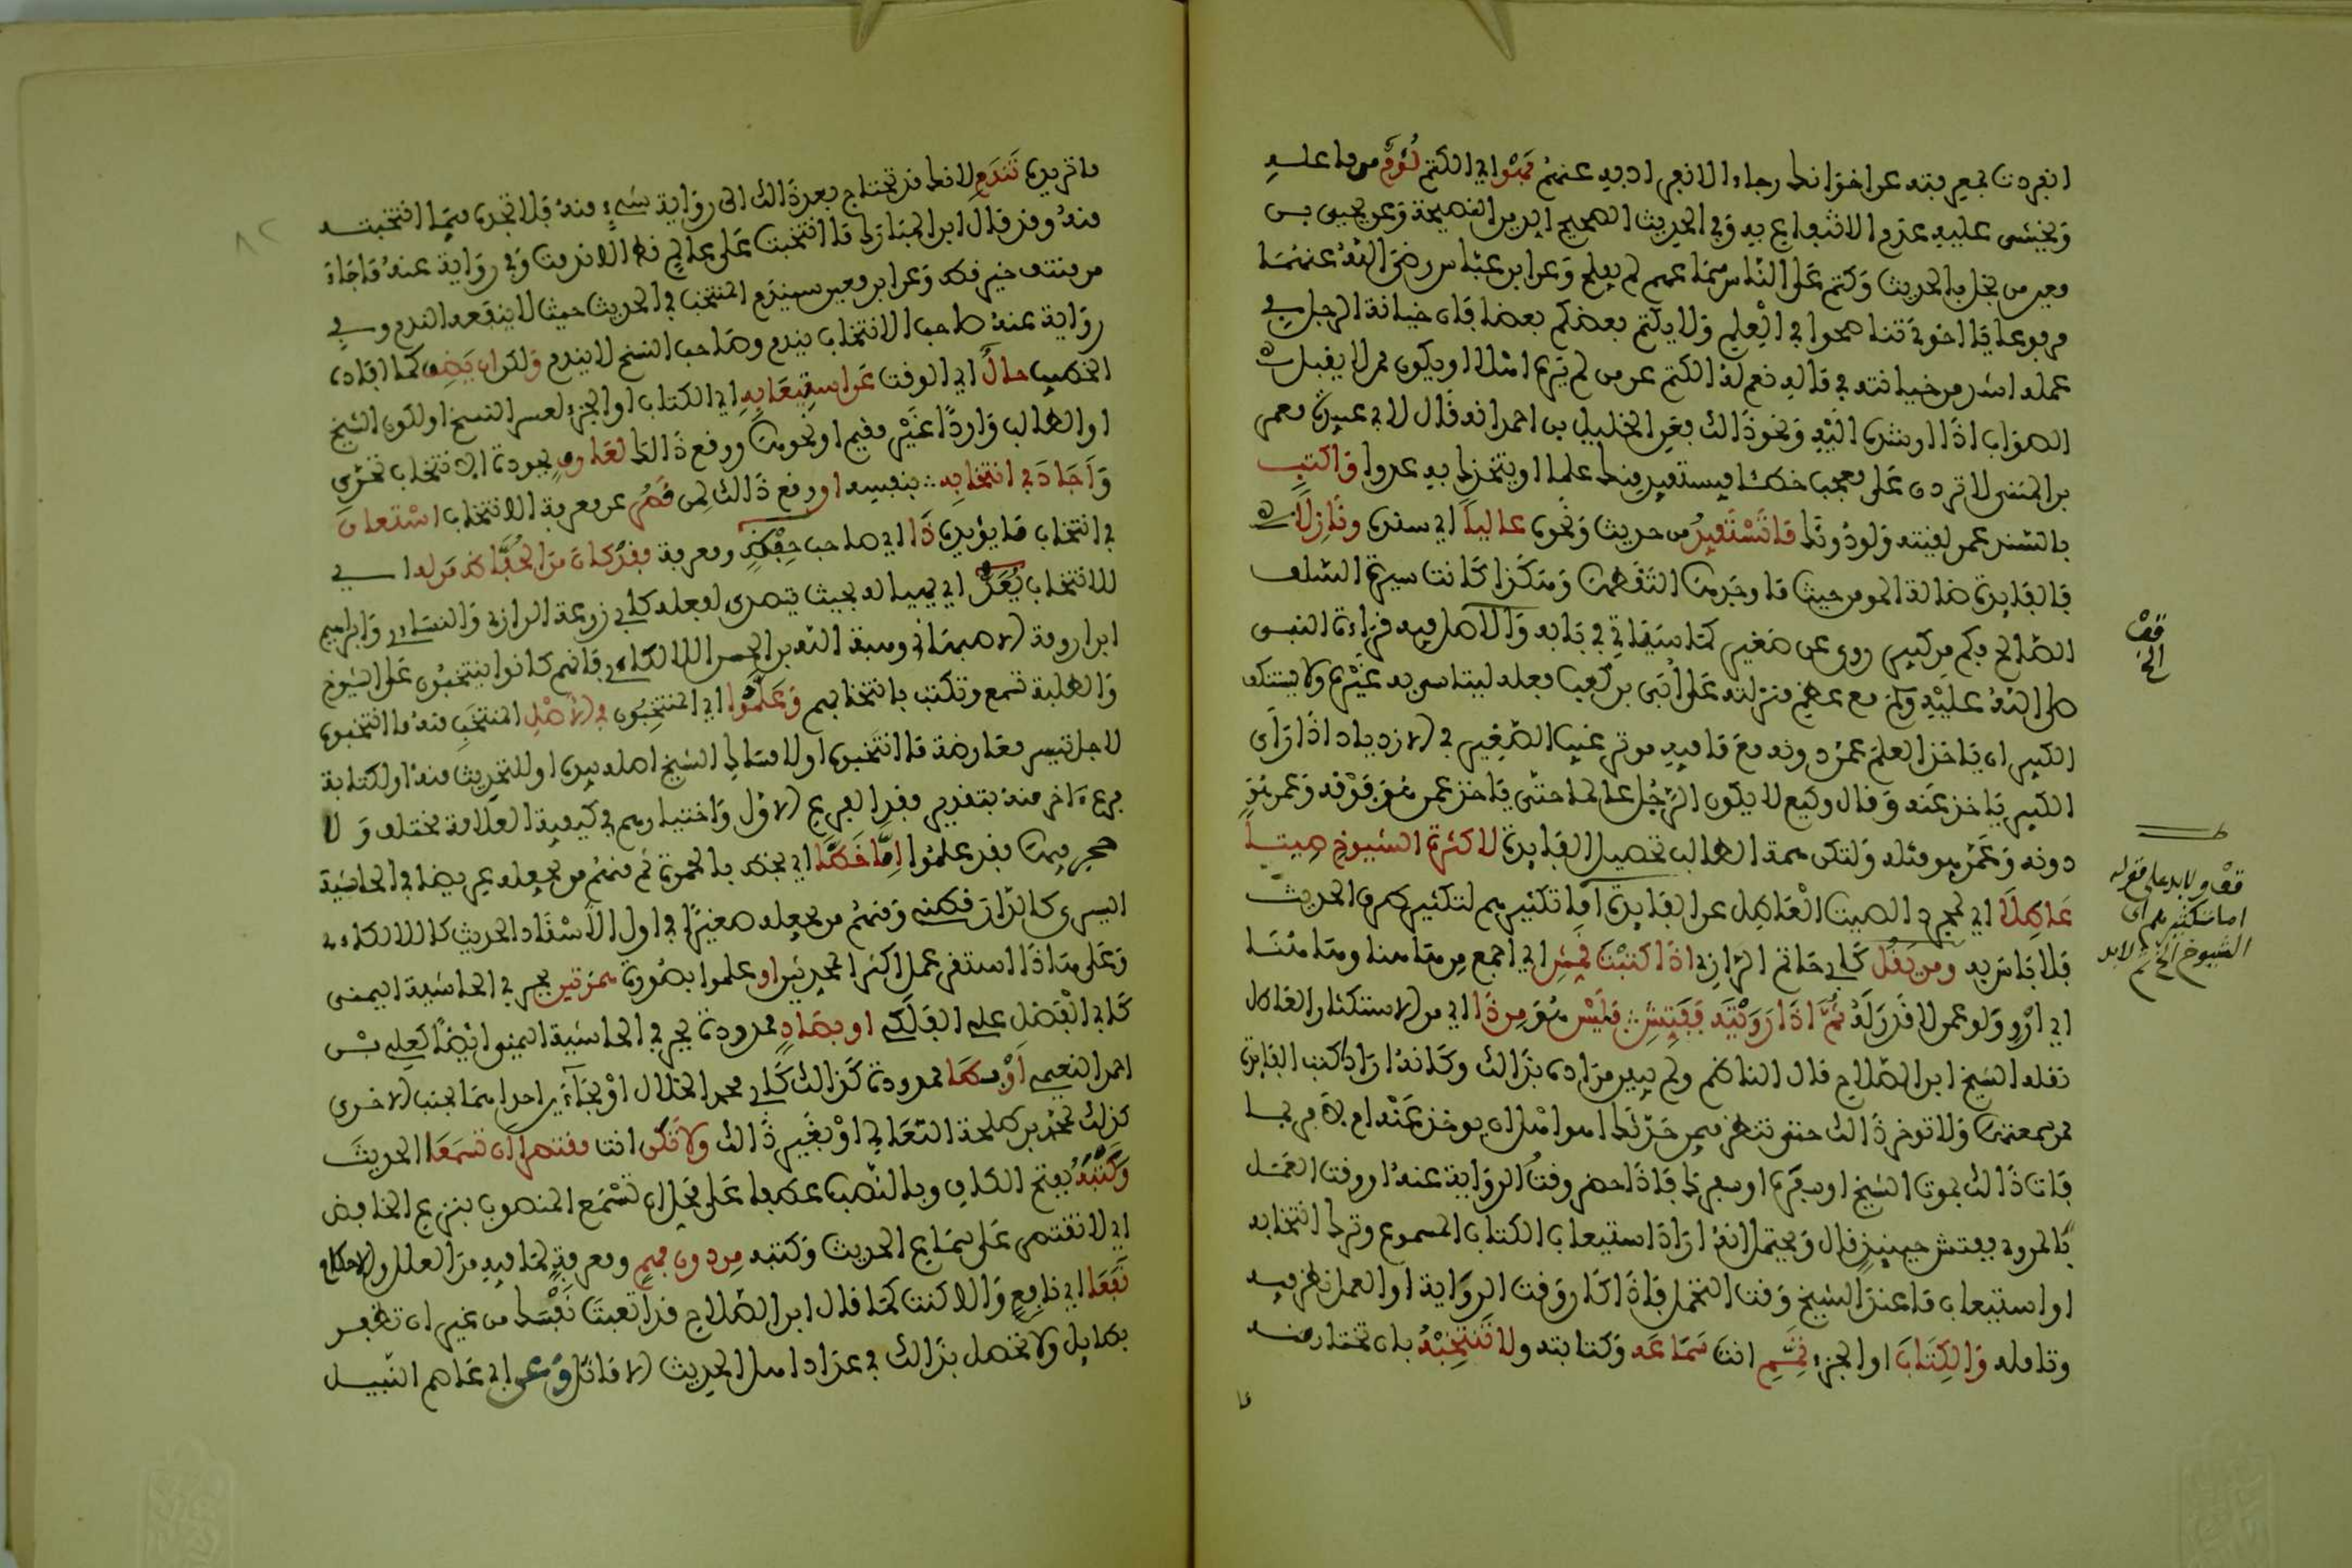 انفردت بمعرفته عن اخوانك رجاء الانفراد به عنهم فهو اي الكتم لؤم من فاعله
ويخشى عليه عدم الانتفاع به وفي الحديث الصحيح الدين النصيحة وعن يحيى بن
معين من بخل بالحديث وكتم على الناس سماعهم لم يفلح وعن ابن عباس رضي الله عنهما
مرفوعا يا اخوتي تناصحوا في العلم ولا يكتم بعضكم بعضا فان خيانة الرجل في
علمه اشد من خيانته في ماله نعم له الكتم عن من لم يره اهلا او يكون ممن لا يقبل
الصواب اذا ارشد اليه ونحو ذلك فعن الخليل بن احمد انه قال لابي عبيدة معمر
بن المثنى لا تردن على معجب خطا فيستفيد منك علما او يتخذك به عدوا واكتب
بالسند عمن لقيته ولو دونك ما تستفيد من حديث ونحوه عاليا اي سنده ونازلا
فالفائدة ضالة المومن حيث ما وجدها التقطها وهكذا كانت سيرة السلف
الصالح فكم من كبير روى عن صغير كما سياتي في بابه والاصل فيه قراءة النبي
صلى الله عليه وسلم مع عظيم منزلته على ابي بن كعب فعله ليتاسى به غيره ولا يستنكف
الكبير ان ياخذ العلم عمن دونه مع ما فيه من ترغيب الصغير في الازدياد اذا راى
الكبير ياخذ عنه وقال وكيع لا يكون الرجل عالما حتى ياخذ عمن هو فوقه وعمن هو
دونه وعمن هو مثله ولتكن همة الطالب تحصيل الفائدة لا كثرة الشيوخ صيتا
عاطلا اي لمجرد الصيت العاطل عن الفائدة اما تكثيرهم لتكثير طرق الحديث
فلا باس به ومن يقل كابي حاتم الرازي اذا كتبت قمش اي اجمع من هاهنا وهاهنا
اي ارو ولو عمن لا قدر له ثم اذا رويته ففتش فليس هو من ذا اي من الاستكثار العاطل
نقله الشيخ ابن الصلاح قال الناظم ولم يبين مراده بذلك وكانه اراد اكتب الفائدة
ممن سمعتها ولا توخر ذلك حتى تنظر فيمن حدثك اهو اهل ان يوخذ عنه ام لا فربما
فات ذلك بموت الشيخ او سفره او سفرك فاذا حضر وقت الرواية عنه او وقت العمل
بالمروي ففتش حينئذ قال ويحتمل انه اراد استيعاب الكتاب المسموع وترك انتخابه
او استيعاب ما عند الشيخ وقت التحمل فاذا كان وقت الرواية او العمل نظر فيه
وتامله والكتاب او الجزء تمم انت سماعه وكتابته ولا تنتخبه بان تختار منه
قف
الخ
ط
قف ولابد على قوله
اما تكثيرهم اي
الشيوخ الخ
ما تريده تندم لانك قد تحتاج بعد ذلك الى رواية شيء منه فلا تجده فيما انتخبته
منه وقد قال ابن المبارك ما انتخبت على عالم قط الا ندمت وفي رواية عنه ما جاء
من منتقى خير قط وعن ابن معين سيندم المنتخب في الحديث حيث لا ينفعه الندم وفي
رواية عنه صاحب الانتخاب يندم وصاحب النسخ لا يندم ولكن ان يضق كما افاده
الخطيب حال اي الوقت عن استيعابه اي الكتاب او الجزء لعسر الشيخ او لكون الشيخ
او الطالب واردا غير مقيم او نحوها ووقع ذلك لعارف بجودة الانتخاب تحرى
واجاد في انتخابه بنفسه او وقع ذلك لمن قصر عن معرفة الانتخاب استعان
في انتخاب ما يريده ذا اي صاحب حفظ ومعرفة فقد كان من الحفاظ من له اي
للانتخاب يعد اي يهيا له بحيث يتصدى لفعله كابي زرعة الرازي والنساءي وابراهيم
ابن ارومة الاصبهاني وهبة الله بن الحسن اللالكاءي فانهم كانوا ينتخبون على الشيوخ
والطلبة تسمع وتكتب بانتخابهم وعلموا اي المنتخبون في الاصل المنتخب منه ما انتخبوه
لاجل تيسر معارضة ما انتخبوه او لامساك الشيخ اصله بيده او للتحديث منه او لكتابة
فرع اخر منه بتقدير فقد الفرع الاول واختيارهم في كيفية العلامة مختلف ولا
حجر فيها فقد علموا اما خطا اي بخط بالحمرة ثم منهم من يجعله عريضا في الحاشية
اليسرى كالدارقطني ومنهم من يجعله صغيرا في اول الاسناد الحديث كاللالكاءي
وعلى هذا استقر عمل اكثر المحدثين او علموا بصورة همزتين بحبر في الحاشية اليمنى
كابي الفضل علي الفلكي او بصاد ممدودة بحبر في الحاشية اليمنى ايضا كعلي بن
احمد النعيمي او بطا ممدودة كذلك كابي محمد الخلال او بحاءين احداهما بجنب الاخرى
كذلك كمحمد بن طلحة النعالي او بغير ذلك ولا تكن انت مقتصرا ان تسمعا الحديث
وكتبه بفتح الكاف وبالنصب عطفا على محل ان تسمع المنصوب بنزع الخافض
اي لا تقتصر على سماع الحديث وكتبه من دون فهم ومعرفة لما فيه من العلل والاحكام
نفعا اي نافع والا كنت كما قال ابن الصلاح قد اتعبت نفسك من غير ان تظفر
بطائل ولا تحصل بذلك في عداد اهل الحديث الاماثل وعن ابي عاصم النبيل